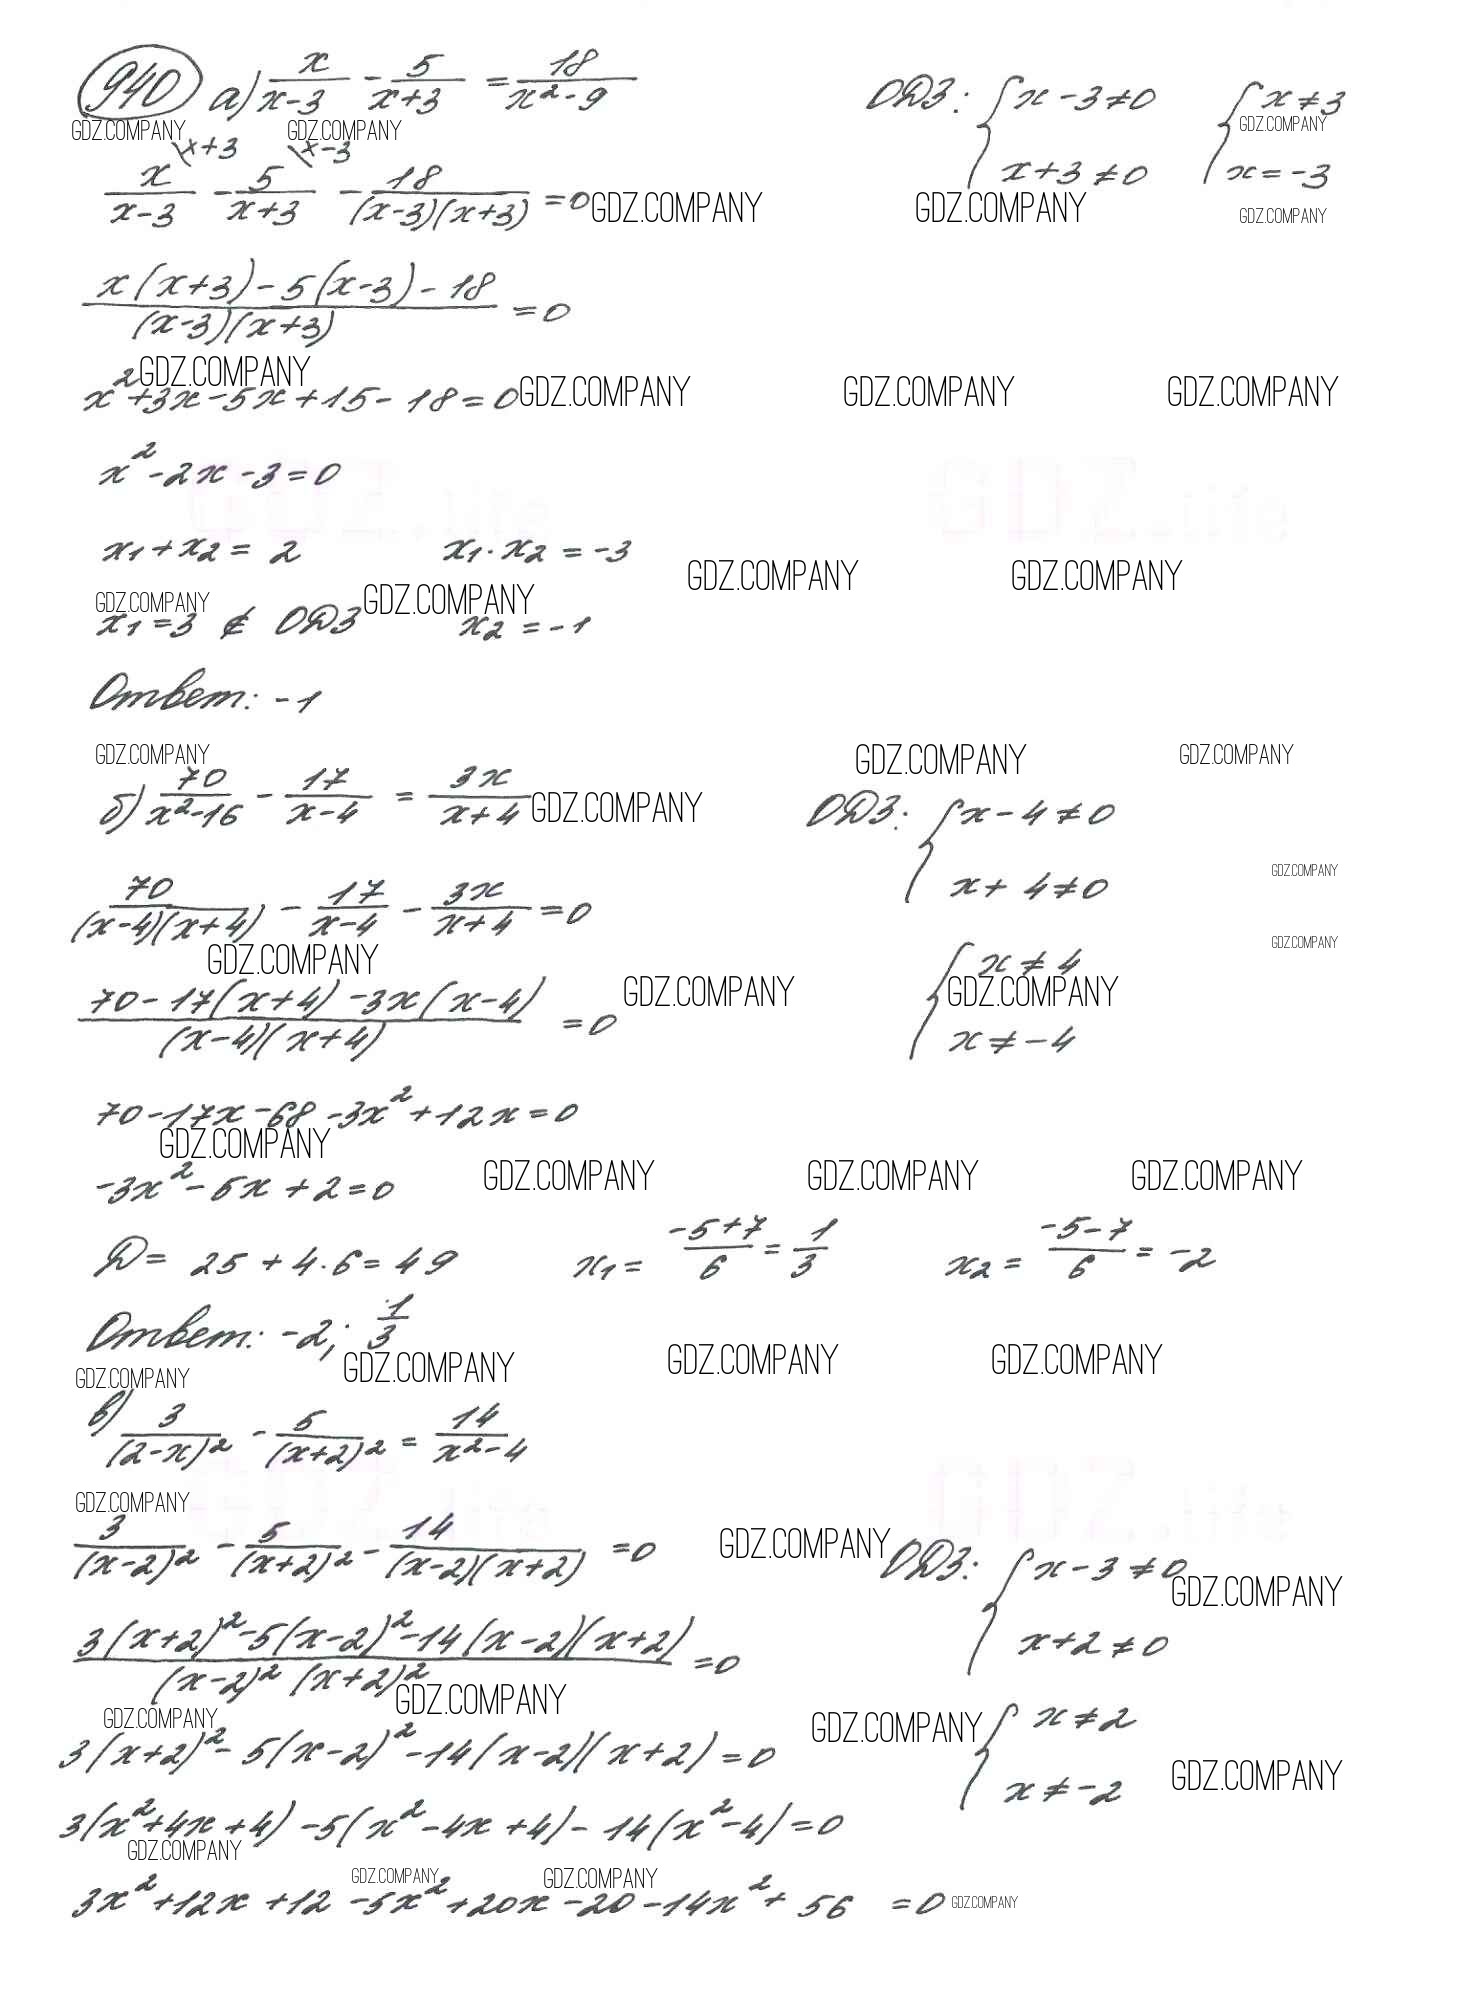 940 а) x/(x-3) - 5/(x+3) = 18/(x²-9) ОДЗ: { x-3≠0 { x≠3
GDZ.COMPANY GDZ.COMPANY GDZ.COMPANY
x+3 x-3 x+3≠0 x=-3
x/(x-3) - 5/(x+3) - 18/((x-3)(x+3)) =0 GDZ.COMPANY GDZ.COMPANY GDZ.COMPANY
(x(x+3)-5(x-3)-18)/((x-3)(x+3)) =0
GDZ.COMPANY
x²+3x-5x+15-18=0 GDZ.COMPANY GDZ.COMPANY GDZ.COMPANY
x²-2x-3=0
GDZ.life GDZ.life
x₁+x₂= 2 x₁·x₂=-3
GDZ.COMPANY GDZ.COMPANY
GDZ.COMPANY GDZ.COMPANY
x₁=3 ∉ ОДЗ x₂=-1
Ответ: -1
GDZ.COMPANY GDZ.COMPANY GDZ.COMPANY
б) 70/(x²-16) - 17/(x-4) = 3x/(x+4) GDZ.COMPANY ОДЗ: { x-4≠0
x+4≠0 GDZ.COMPANY
70/((x-4)(x+4)) - 17/(x-4) - 3x/(x+4) =0
GDZ.COMPANY { x≠4 GDZ.COMPANY
(70-17(x+4)-3x(x-4))/((x-4)(x+4)) =0 GDZ.COMPANY GDZ.COMPANY
x≠-4
70-17x-68-3x²+12x=0
GDZ.COMPANY
-3x²-5x+2=0 GDZ.COMPANY GDZ.COMPANY GDZ.COMPANY
Д= 25+4·6=49 x₁= (-5+7)/6 = 1/3 x₂= (-5-7)/6 = -2
Ответ: -2; 1/3
GDZ.COMPANY GDZ.COMPANY GDZ.COMPANY GDZ.COMPANY
в) 3/(2-x)² - 5/(x+2)² = 14/(x²-4)
GDZ.life GDZ.life
GDZ.COMPANY
3/(x-2)² - 5/(x+2)² - 14/((x-2)(x+2)) =0 GDZ.COMPANY ОДЗ: { x-3≠0
GDZ.COMPANY
x+2≠0
(3(x+2)²-5(x-2)²-14(x-2)(x+2))/((x-2)²(x+2)²) =0
GDZ.COMPANY GDZ.COMPANY GDZ.COMPANY { x≠2
3(x+2)²-5(x-2)²-14(x-2)(x+2)=0 GDZ.COMPANY
x≠-2
3(x²+4x+4)-5(x²-4x+4)-14(x²-4)=0
GDZ.COMPANY GDZ.COMPANY GDZ.COMPANY
3x²+12x+12-5x²+20x-20-14x²+56 =0 GDZ.COMPANY